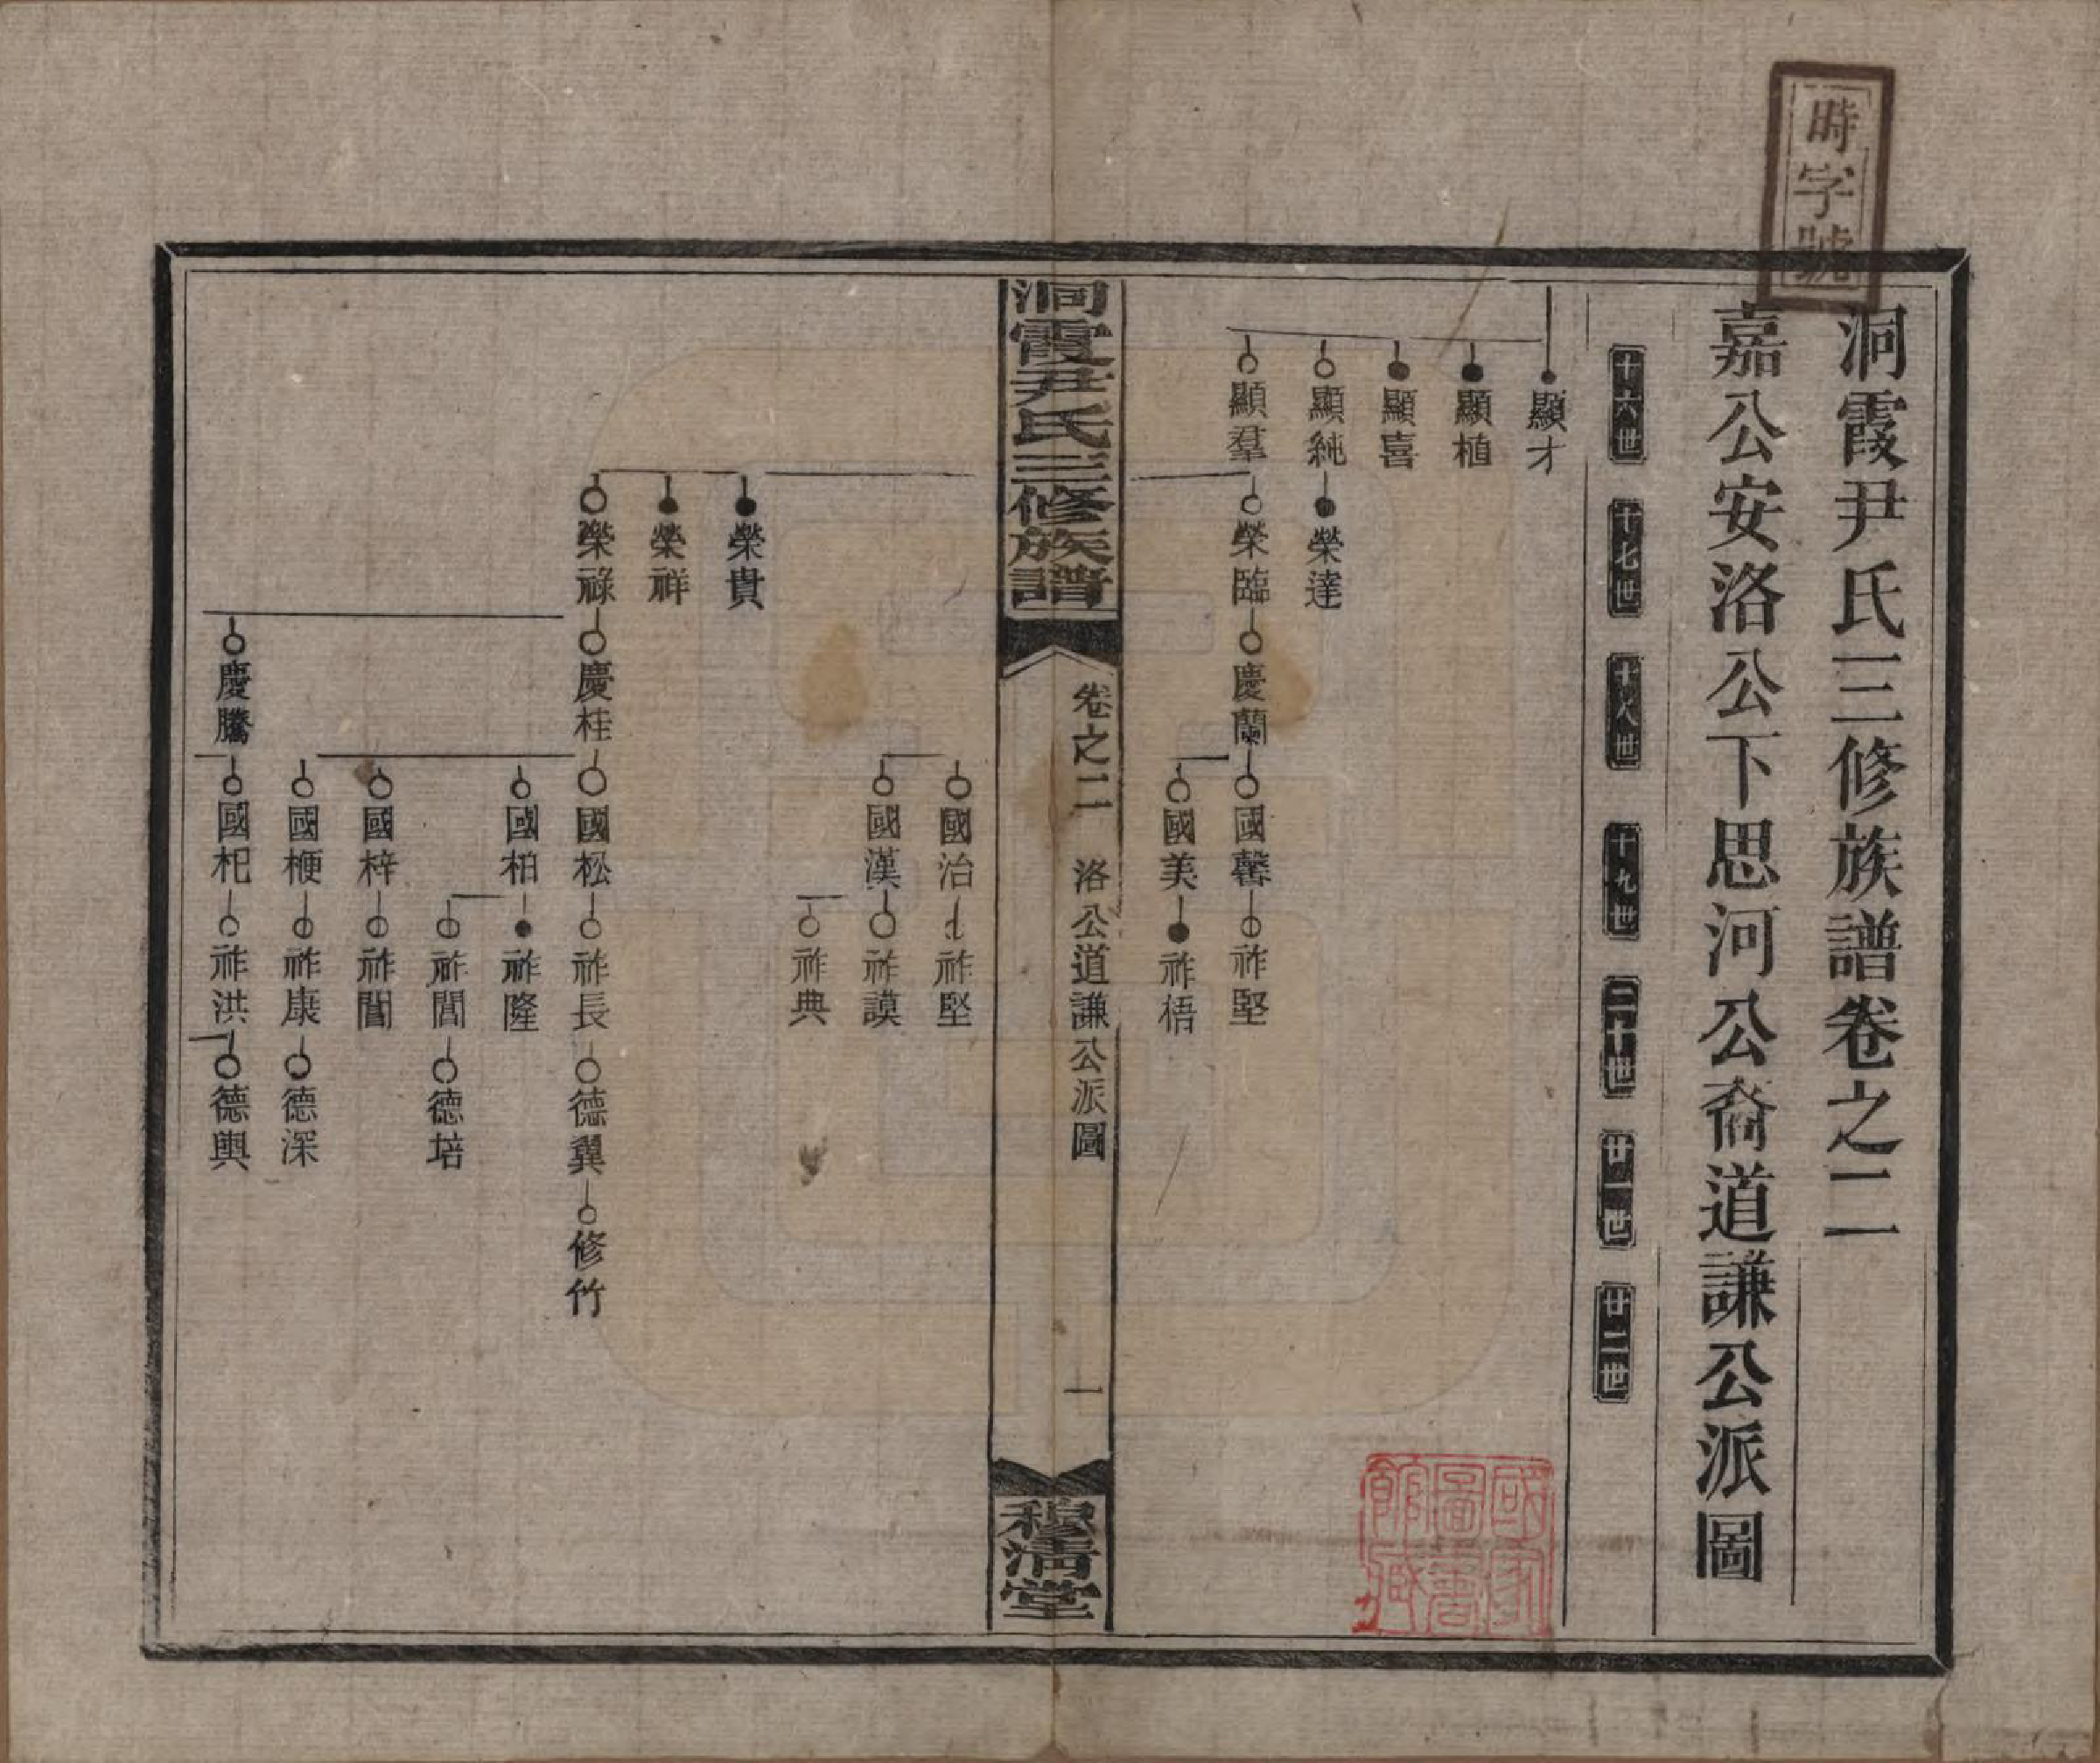 時字號
洞霞尹氏三修族譜卷之二
嘉公安洛公下思河公裔道謙公派圖
十六世 十七世 十八世 十九世 二十世 廿一世 廿二世
顯才
顯植
顯喜
顯純 榮達
顯羣 榮臨 慶蘭 國馨 祚堅
國美 祚梧
洞霞尹氏三修族譜 卷之二 洛公道謙公派圖 一 穆清堂
國治 祚堅
國漢 祚謨
祚典
榮貴
榮祥
榮祿 慶桂 國松 祚長 德翼 修竹
國柏 祚隆
祚閶 德培
國梓 祚閶
國梗 祚康 德深
慶騰 國杞 祚洪 德輿
國家圖書館藏